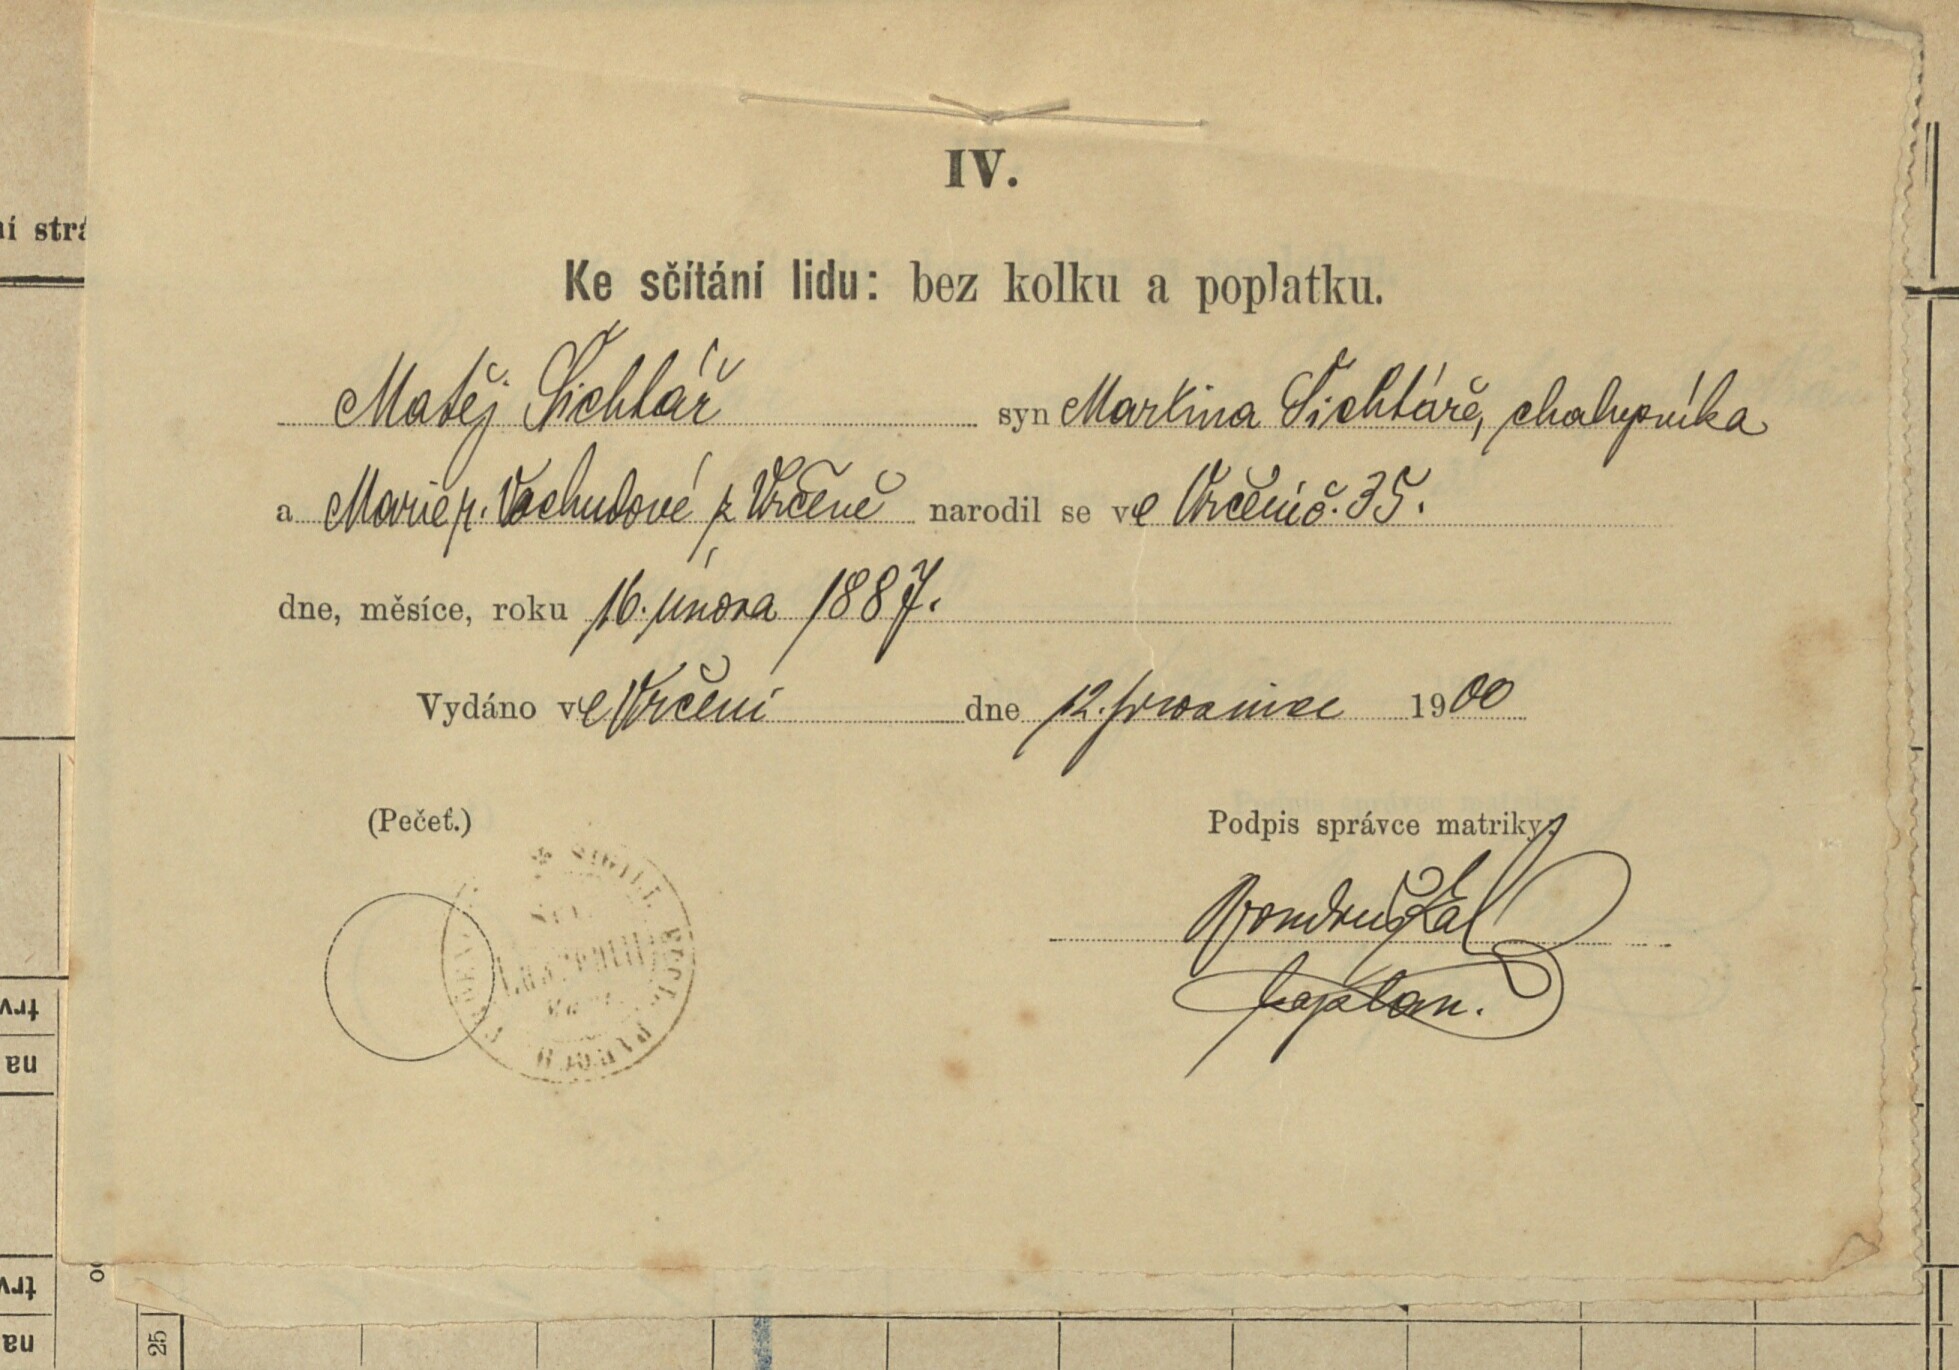 ní strá
IV.
Ke sčítání lidu: bez kolku a poplatku.
Matěj Šichtář syn Martina Šichtáře, chalupníka
a Marie r. Vachudové z Vrčeně narodil se ve Vrčeni č. 35.
dne, měsíce, roku 16. února 1887.
Vydáno ve Vrčeni dne 12. prosince 1900
(Pečeť.)
Podpis správce matriky:
SIGILL
Laurentii
kaplan.
trv
na
trv
na
25